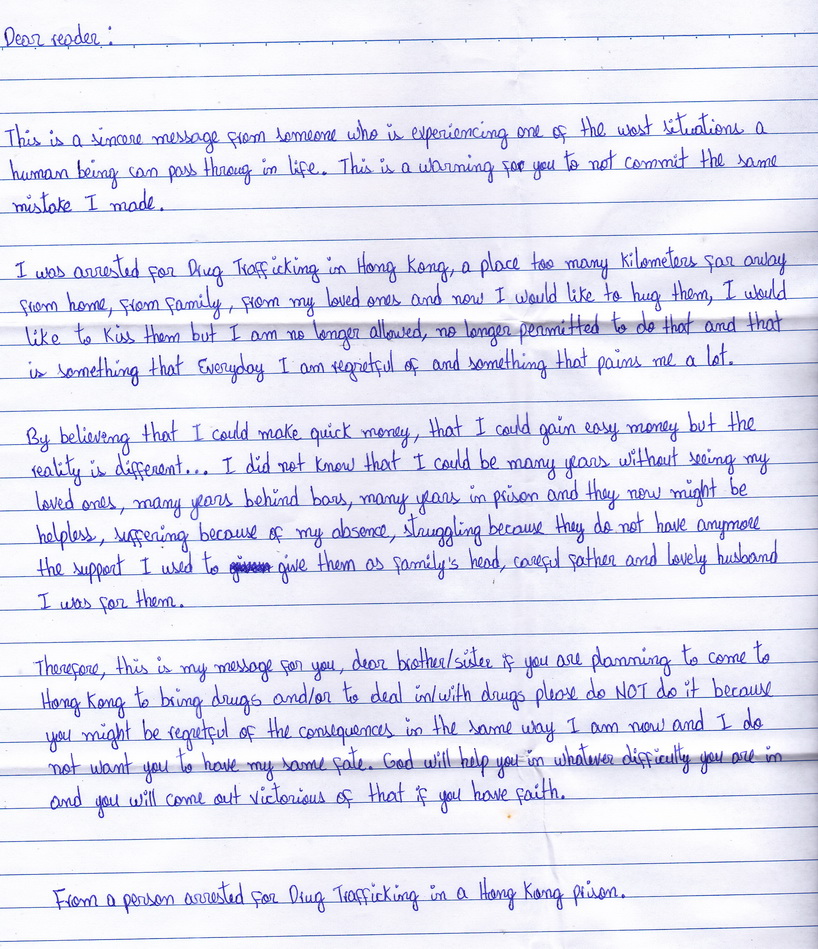 Dear reader:
This is a sincere message from someone who is experiencing one of the wost situations a
human being can pass throug in life. This is a warning for you to not commit the same
mistake I made.
I was arrested for Drug Trafficking in Hong Kong, a place too many kilometers far away
from home, from family, from my loved ones and now I would like to hug them, I would
like to kiss them but I am no longer allowed, no longer permitted to do that and that
is something that Everyday I am regretful of and something that pains me a lot.
By believeng that I could make quick money, that I could gain easy money but the
reality is different... I did not know that I could be many years without seeing my
loved ones, many years behind bars, many years in prison and they now might be
helpless, suffering because of my absence, struggling because they do not have anymore
the support I used to give them as family's head, careful father and lovely husband
I was for them.
Therefore, this is my message for you, dear brother/sister if you are planning to come to
Hong Kong to bring drugs and/or to deal in/with drugs please do NOT do it because
you might be regretful of the consequences in the same way I am now and I do
not want you to have my same fate. God will help you in whatever difficulty you are in
and you will come out victorious of that if you have faith.
From a person arrested for Drug Trafficking in a Hong Kong prison.